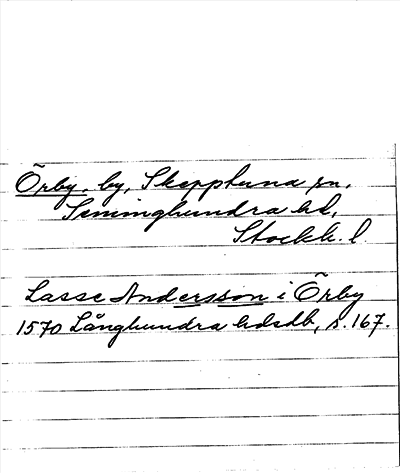 Örby, by, Skepptuna sn,
Seminghundra hd,
Stockh. l.
Lasse Andersson i Örby
1570 Långhundra hdsdb, s. 167.